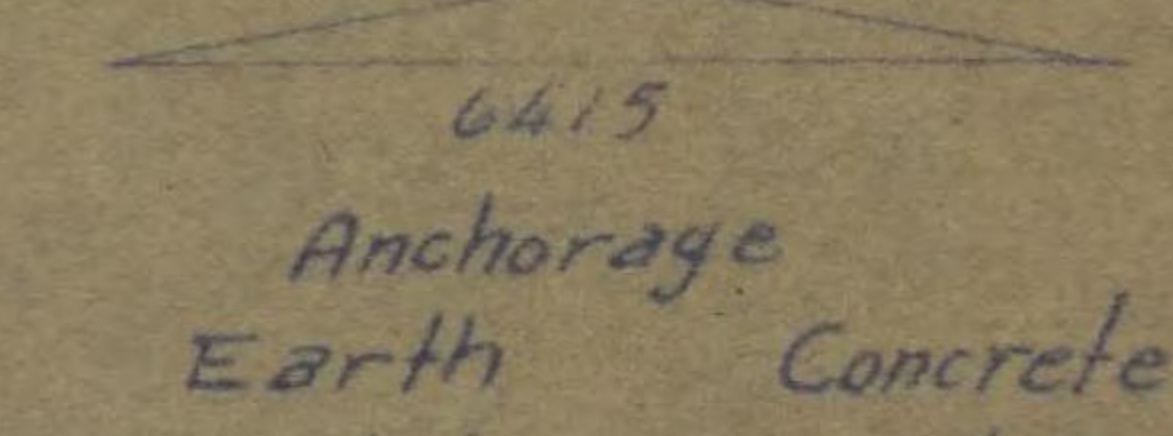 6615
Anchorage
Earth Concrete